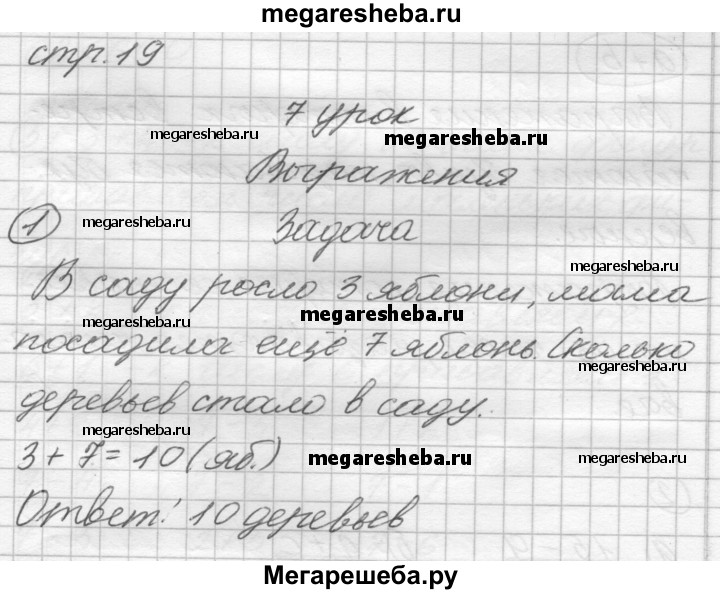 megaresheba.ru
стр. 19
7 урок
megaresheba.ru
megaresheba.ru
Выражения
1 megaresheba.ru Задача
megaresheba.ru
В саду росло 3 яблони, мама
megaresheba.ru
megaresheba.ru
посадила ещё 7 яблонь. Сколько
megaresheba.ru
деревьев стало в саду.
megaresheba.ru
3 + 7 = 10 (яб.) megaresheba.ru
megaresheba.ru
Ответ: 10 деревьев
Мегарешеба.ру